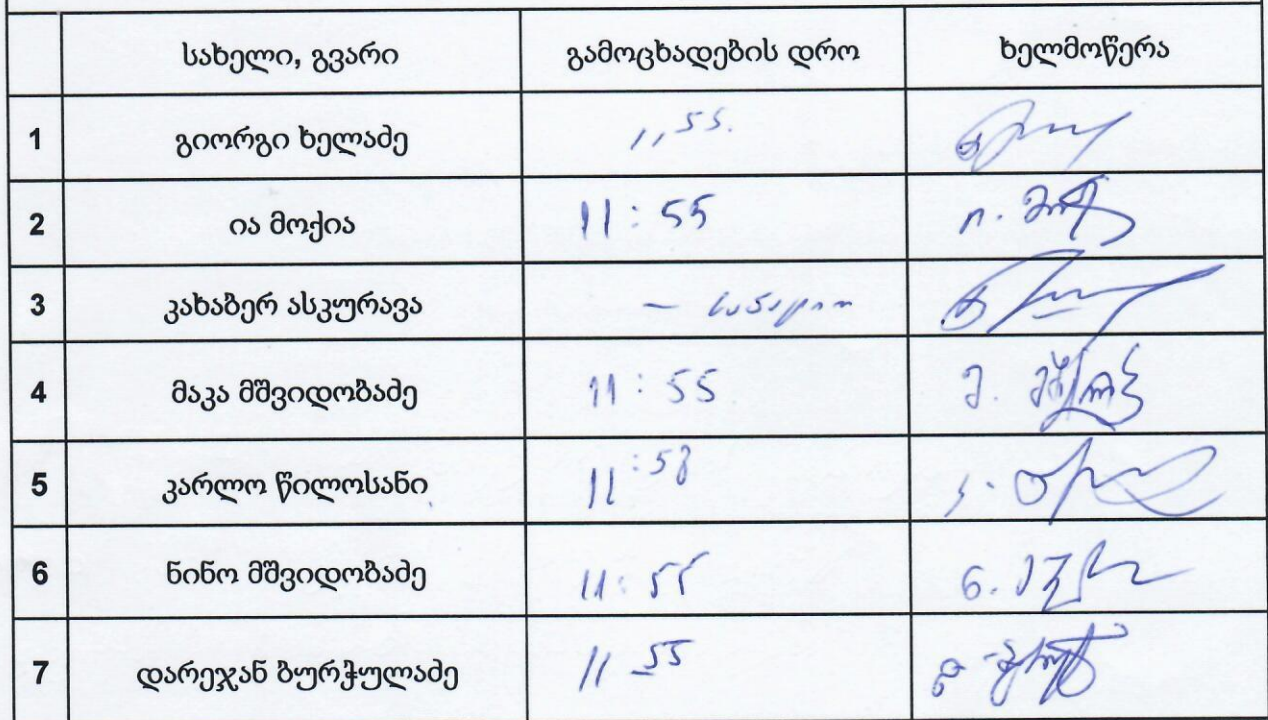 სახელი, გვარი გამოცხადების დრო ხელმოწერა
1 გიორგი ხელაძე 11 55.
2 ია მოქია 11:55
3 კახაბერ ასკურავა —
4 მაკა მშვიდობაძე 11:55
5 კარლო წილოსანი 11:58
6 ნინო მშვიდობაძე 11:55
7 დარეჯან ბურჭულაძე 11 55